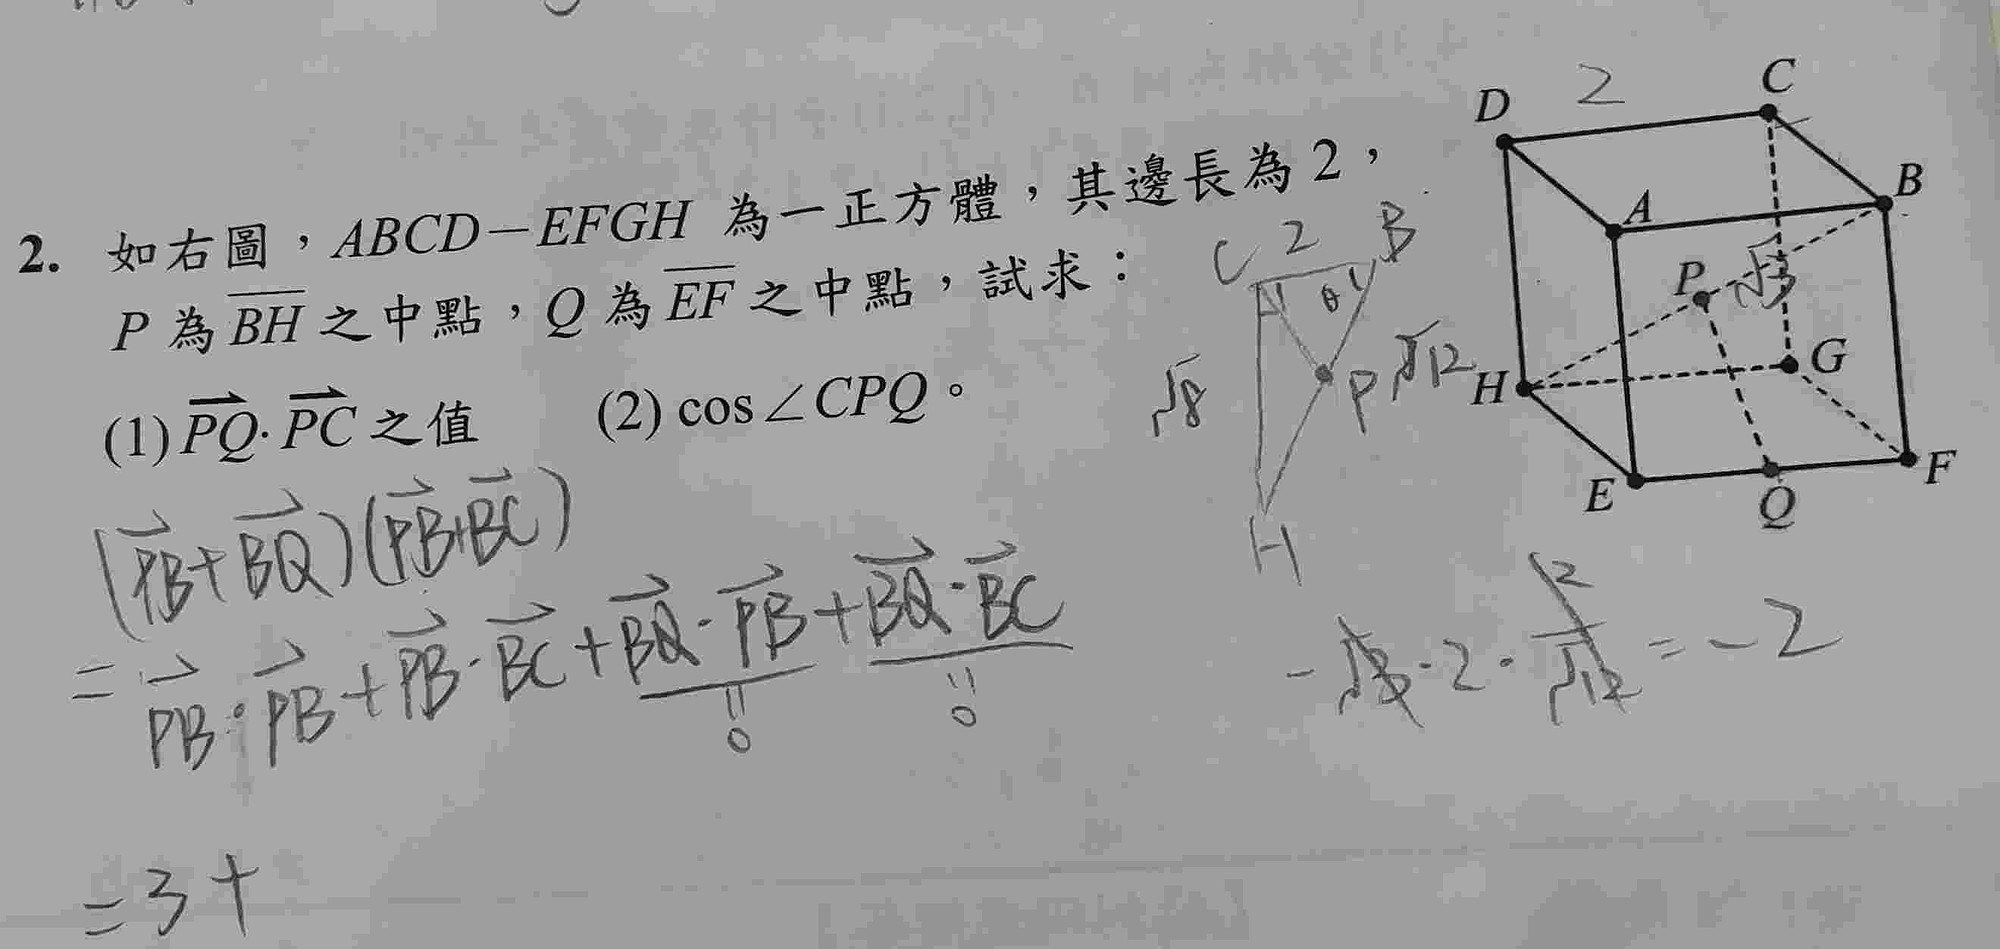 2. 如右圖，ABCD－EFGH 為一正方體，其邊長為 2，
P 為 BH 之中點，Q 為 EF 之中點，試求：
(1) PQ · PC 之值 (2) cos∠CPQ。
(PB+BQ)(PB+BC)
= PB·PB+PB·BC+BQ·PB+BQ·BC
0 0
=3+
C 2 B
θ
√8 P √12
H
D 2 C
A B
P √3
H G
E Q F
=-2